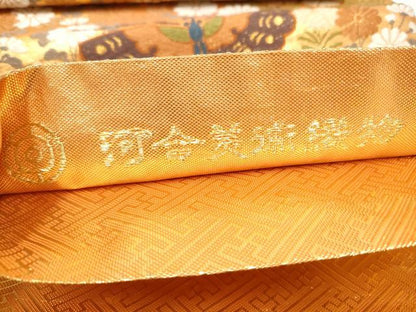 河合美術織物